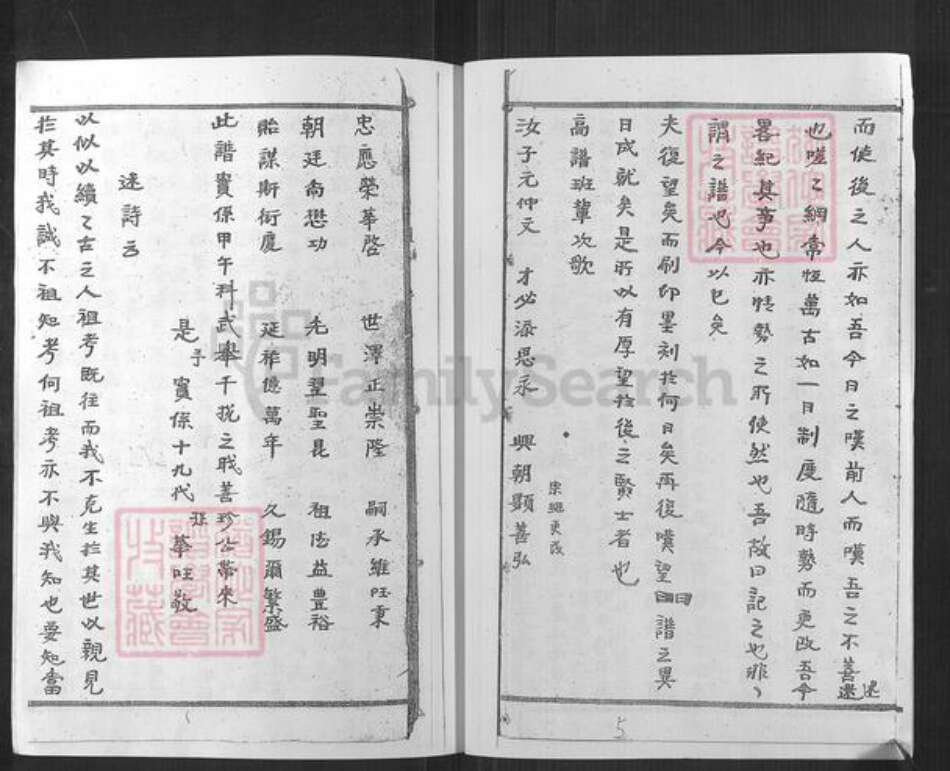 而使後之人亦如吾今日之嘆前人而嘆吾之不善述
也嗟之網常恆萬古如一日制度隨時勢而更改吾今
畧紀其事也亦情勢之所使然也吾故曰記之也非
謂之譜也今以已矣
夫復望矣而刷印墨刻於何日矣再後嘆望譜之異
日成就矣是所以有厚望於後之賢士者也
高譜班輩次歌
宗班更改
汝子元仲文 才必添思永 興朝顯善弘
忠應榮華啓 世澤正崇隆 嗣承維旺秉
朝廷尚懋功 先明翌聖昆 祖德益豊裕
貽謀斯衍慶 延祚億萬年 久錫爾繁盛
此譜實係甲午科武舉千總之職善珍公帶來
是予實係十九代 華旺敬
述詩云
以似以續之古之人祖考既往而我不克生於其世以親見
於其時我誠不祖知考何祖考亦不與我知也要知當
5
FamilySearch